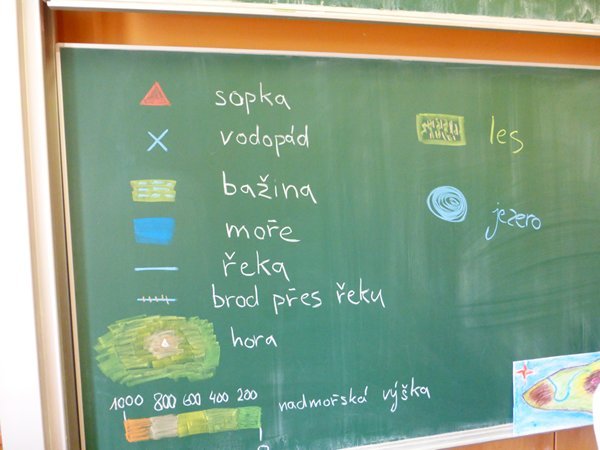 sopka
vodopád
bažina
moře
řeka
brod přes řeku
hora
1000 800 600 400 200
nadmořská výška
les
jezero